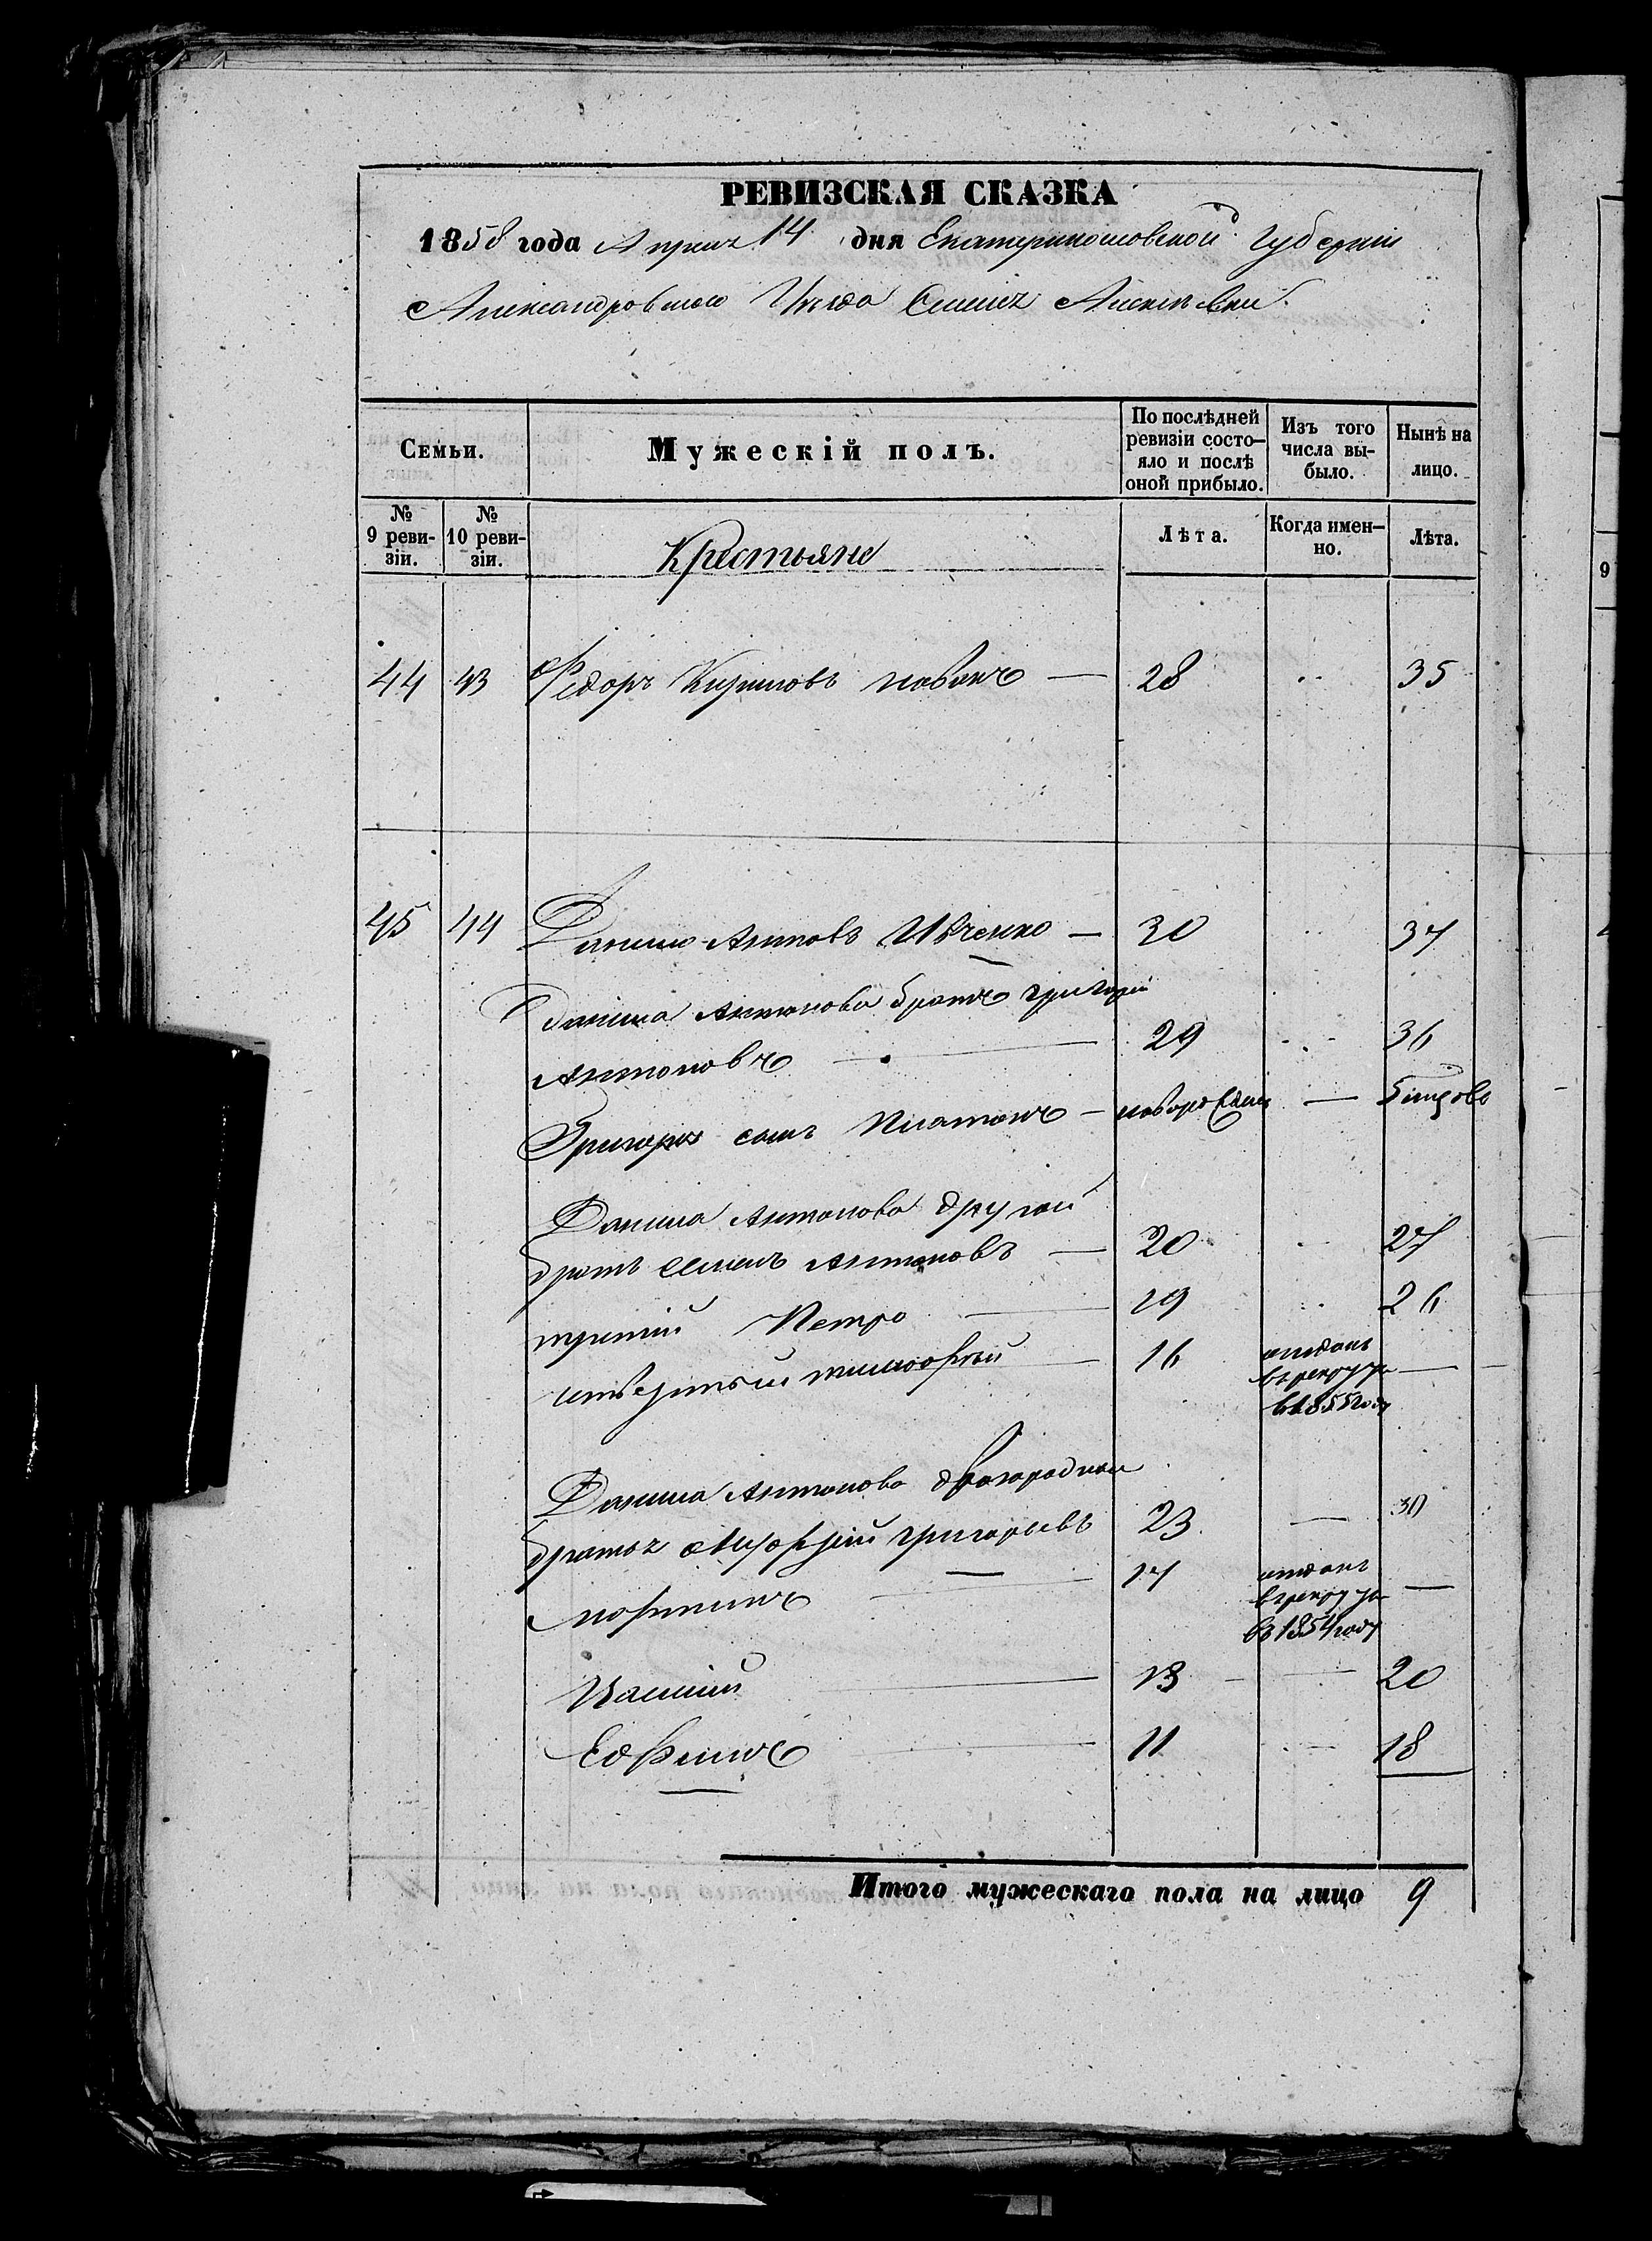 РЕВИЗСКАЯ СКАЗКА
1858 года Апреля 14 дня Екатеринославской Губернии
Александровского Уезда Селения Алексеевки
Семьи.
Мужескій полъ.
По послѣдней ревизіи состо-яло и послѣ оной прибыло.
Изъ того числа вы-было.
Нынѣ на лицо.
№ 9 реви-зіи.
№ 10 реви-зіи.
Крестьяне
Лѣта.
Когда имен-но.
Лѣта.
44 43 Федоръ Кириловъ — 28 35
45 44 Данило Антоновъ Ивченко — 30 37
Данила Антонова братъ Григорій
Антоновъ — 29 36
Григорія сынъ Платонъ — новорожден —
Данила Антонова другой
братъ Семенъ Антоновъ — 20 27
третий Петро — 19 26
четвертый Тимофей — 16 отданъ —
в рекруты
в 1855 году
Данила Антонова двоюродной
братъ Григорьевъ 23 — 30
Мартинъ — 17 отданъ —
в рекруты
в 1854 году
— 13 — 20
Ефимъ — 11 — 18
Итого мужескаго пола на лицо 9
9